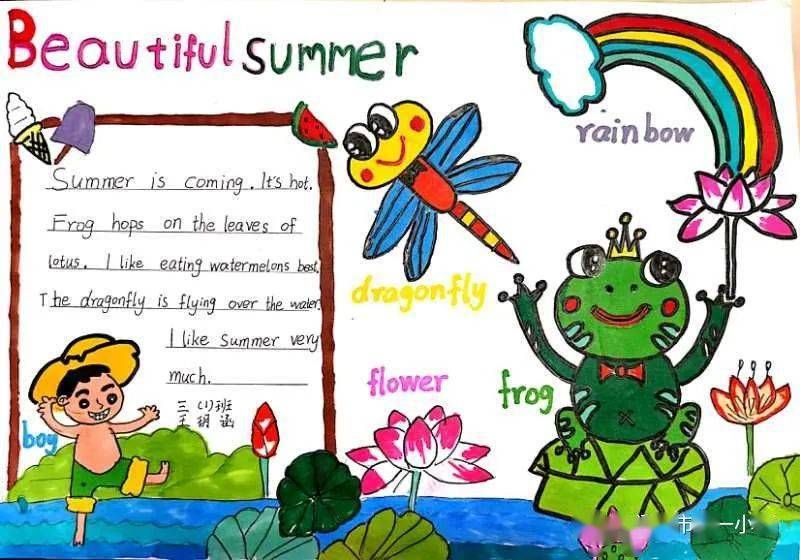 Beautiful summer
rainbow
Summer is coming. It's hot.
Frog hops on the leaves of
lotus. I like eating watermelons best.
The dragonfly is flying over the water.
I like summer very
much.
三(1)班
王玥涵
dragonfly
flower
frog
boy
市 一小